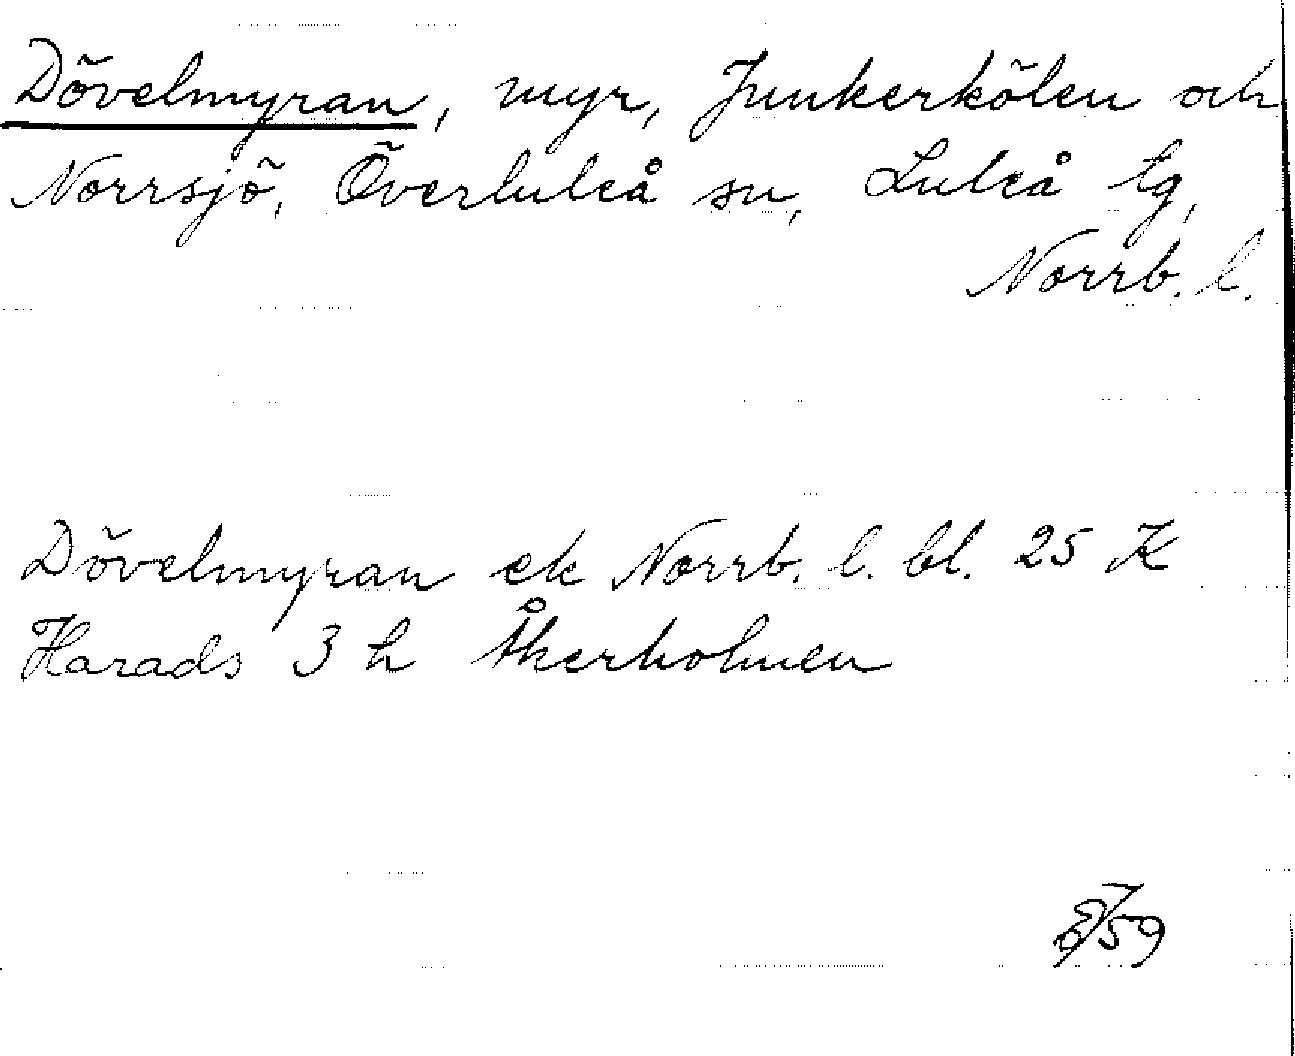 Dövelmyran, myr, Junkerkölen och
Norrsjö, Överluleå sn, Luleå tg,
Norrb. l.
Dövelmyran ek Norrb. l. bl. 25 K
Harads 3 h Åkerholmen